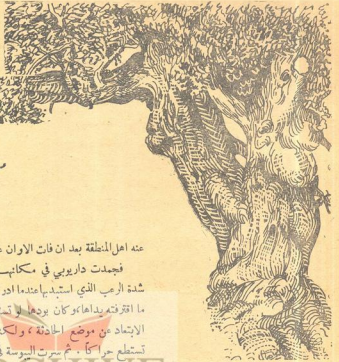 عنه اهل المنطقة بعد ان فات الاوان
فجمدت داريوبي في مكانهـ
شدة الرعب الذي استبد بها عندما ادر
ما اقترفته يداها، وكان بودها لو تمـ
الابتعاد عن موضع الحادثة ، ولكنـ
تستطع حراكاً . ثم سرت